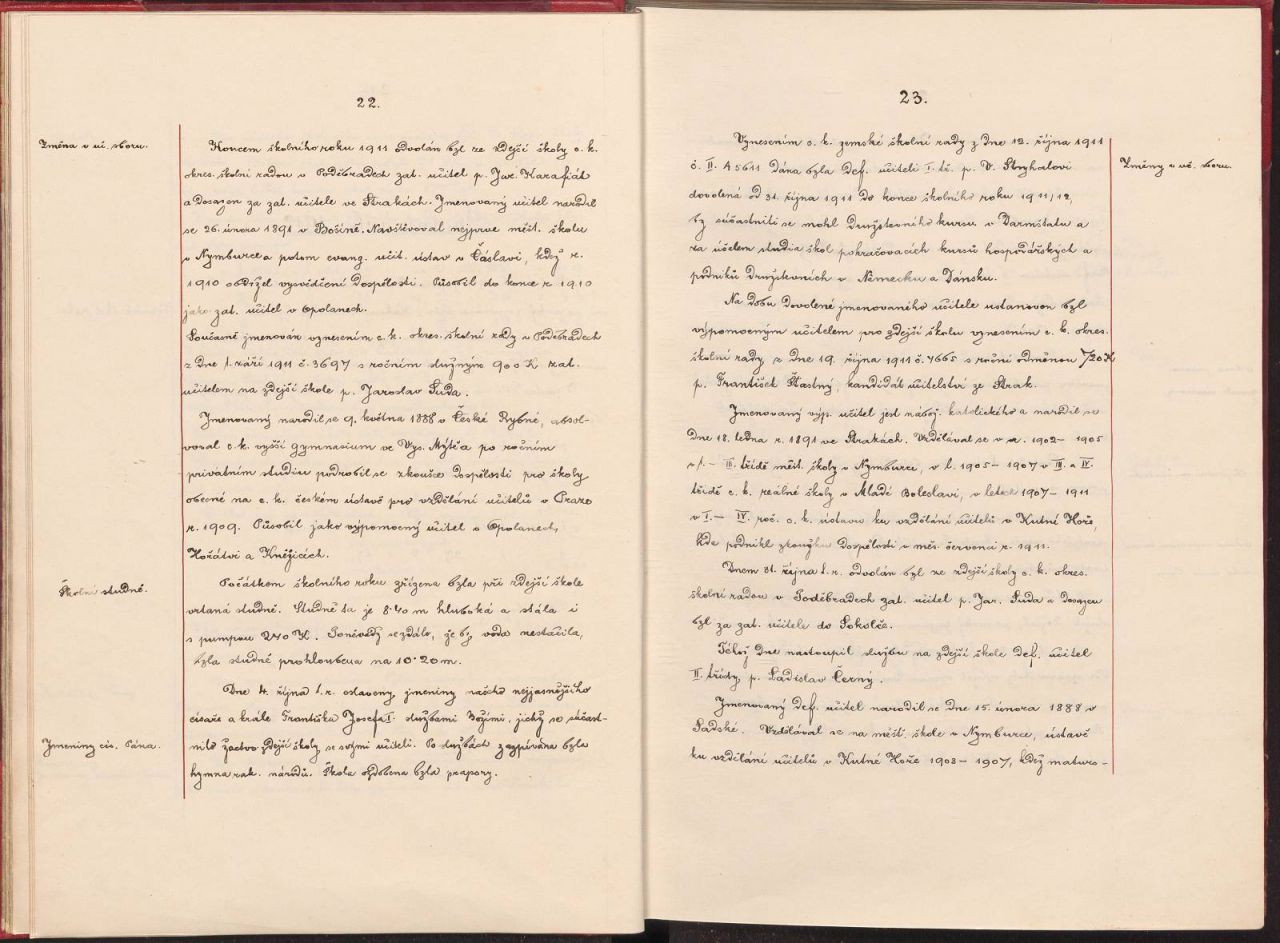 22.
Změna v uč. sboru.
Koncem školního roku 1911 odvolán byl ze zdejší školy c. k.
okres. školní radou v Poděbradech zat. učitel p. Jar. Karafiát
a dosazen za zat. učitele ve Strakách. Jmenovaný učitel narodil
se 26. února 1891 v Bošíně. Navštěvoval nejprve měšť. školu
v Nymburce a potom evang. učit. ústav v Čáslavi, kdež r.
1910 obdržel vysvědčení dospělosti. Působil do konce r. 1910
jako zat. učitel v Opolanech.
Současně jmenován vynesením c. k. okres. školní rady v Poděbradech
z dne 1. září 1911 č. 3697 s ročním služným 900 K zat.
učitelem na zdejší škole p. Jaroslav Suda.
Jmenovaný narodil se 9. května 1888 v České Rybné, absol-
voval c. k. vyšší gymnasium ve Vys. Mýtě a po ročním
privátním studiu podrobil se zkoušce dospělosti pro školy
obecné na c. k. českém ústavě pro vzdělání učitelů v Praze
r. 1909. Působil jako výpomocný učitel v Opolanech,
Hořátvi a Kněžicích.
Školní studně.
Počátkem školního roku zřízena byla při zdejší škole
vrtaná studně. Studně ta je 8.40 m hluboká a stála i
s pumpou 240 K. Poněvadž se zdálo, že by voda nestačila,
byla studně prohloubena na 10.20 m.
Dne 4. října t. r. oslaveny jmeniny našeho nejjasnějšího
císaře a krále Františka Josefa I. službami Božími, jichž se súčast-
nilo žactvo zdejší školy se svými učiteli. Po službách zazpívána byla
Jmeniny cís. Pána.
hymna rak. národů. Škola ozdobena byla prapory.
23.
Změny v uč. sboru.
Vynesením c. k. zemské školní rady z dne 12. října 1911
č. II. A 5611 dána byla def. učiteli I. tř. p. V. Stryhalovi
dovolená od 31. října 1911 do konce školního roku 1911/12,
by súčastniti se mohl družstevního kursu v Darmštatu a
za účelem studia škol pokračovacích kursů hospodářských a
podniků družstevních v Německu a Dánsku.
Na dobu dovolené jmenovaného učitele ustanoven byl
výpomocným učitelem pro zdejší školu vynesením c. k. okres.
školní rady z dne 19. října 1911 č. 4665 s roční odměnou 720 K
p. František Šťastný, kandidát učitelství ze Strak.
Jmenovaný výp. učitel jest nábož. katolického a narodil se
dne 18. ledna r. 1891 ve Strakách. Vzdělával se v r. 1902–1905
v I.–III. třídě měšť. školy v Nymburce, v l. 1905–1907 v III. a IV.
třídě c. k. reálné školy v Mladé Boleslavi, v letech 1907–1911
v I.–IV. roč. c. k. ústavu ku vzdělání učitelů v Kutné Hoře,
kde podnikl zkoušku dospělosti v měs. červenci r. 1911.
Dnem 31. října t. r. odvolán byl ze zdejší školy c. k. okres.
školní radou v Poděbradech zat. učitel p. Jar. Suda a dosazen
byl za zat. učitele do Sokolče.
Téhož dne nastoupil službu na zdejší škole def. učitel
II. třídy, p. Ladislav Černý.
Jmenovaný def. učitel narodil se dne 15. února 1888 v
Sadské. Vzdělával se na měšť. škole v Nymburce, ústavě
ku vzdělání učitelů v Kutné Hoře 1903–1907, kdež maturo-